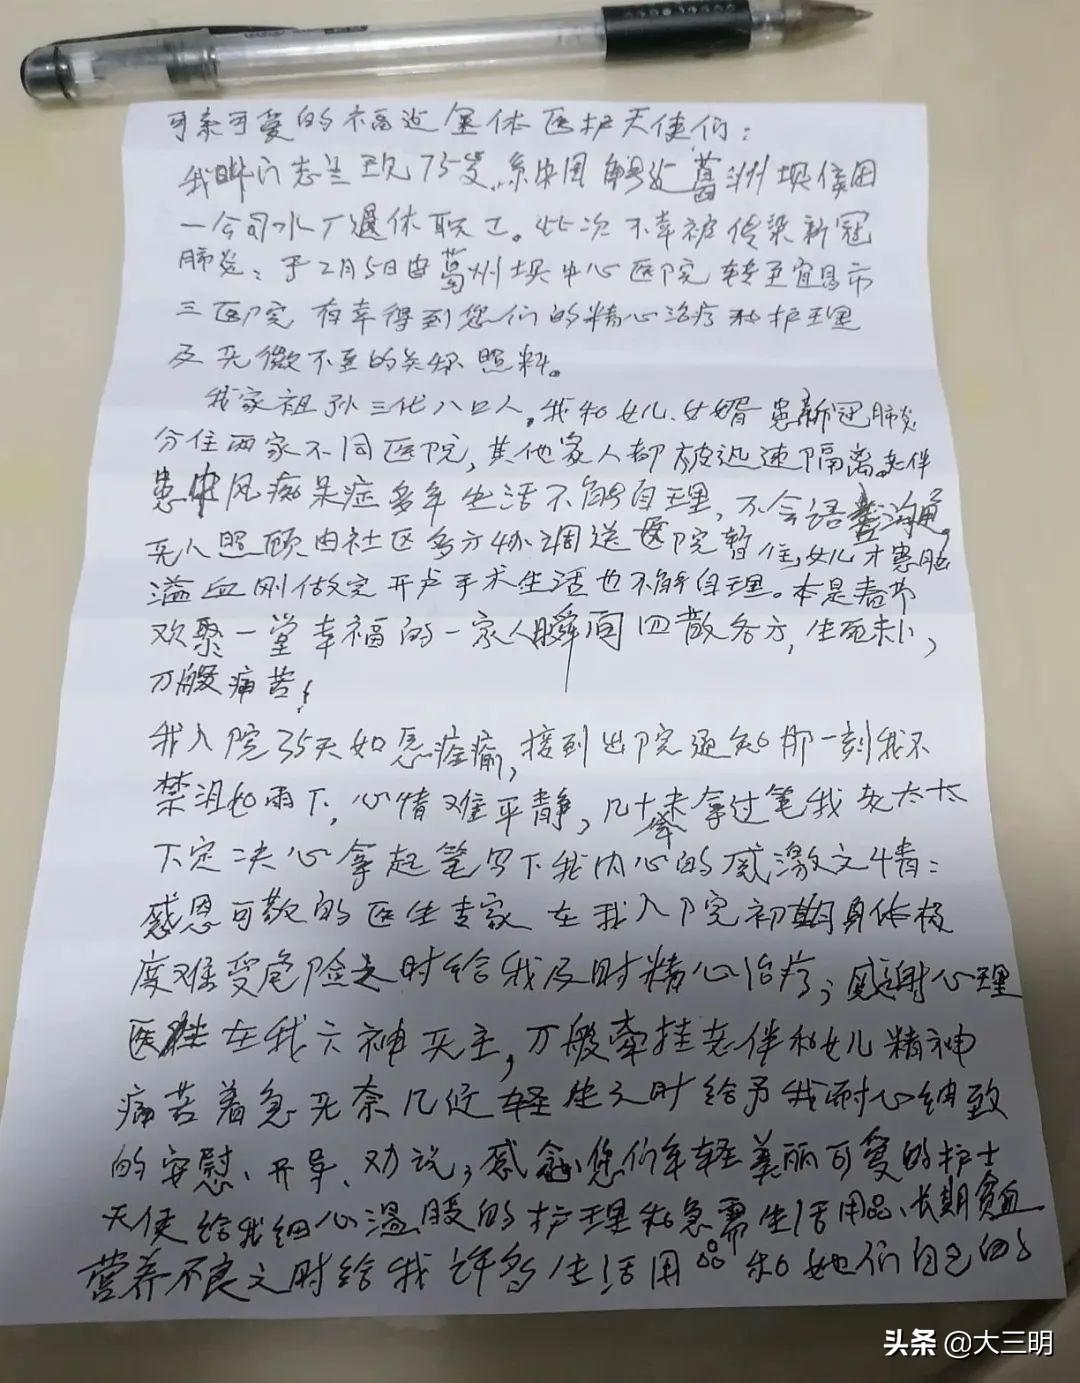 可亲可爱的福建全体医护天使们：
我叫志兰现75岁，系中国能建葛洲坝集团
一公司水厂退休职工。此次不幸被传染新冠
肺炎；于2月5日由葛州坝中心医院转至宜昌市
三医院有幸得到您们的精心治疗和护理
及无微不至的关怀照料。
我家祖孙三代八口人，我和女儿、女婿患新冠肺炎
分住两家不同医院，其他家人都被迅速隔离。老伴
患中风痴呆症多年生活不能自理，不会语言沟通。
无人照顾由社区多方协调送医院暂住，女儿才患脑
溢血刚做完开颅手术生活也不能自理。本是春节
欢聚一堂幸福的一家人瞬间四散各方，生死未卜，
万般痛苦！
我入院35天如愿痊愈，接到出院通知那一刻我不
禁泪如雨下，心情难平静，几十年未拿过笔我老太太
下定决心拿起笔写下我内心的感激文情：
感恩可敬的医生专家在我入院初期身体极
度难受危险之时给我及时精心治疗；感谢心理
医生在我六神无主，万般牵挂老伴和女儿精神
痛苦着急无奈几近轻生之时给予我耐心细致
的安慰、开导、劝说；感念您们年轻美丽可爱的护士
天使给我细心温暖的护理和急需生活用品、长期贫血
营养不良之时给我许多生活用品和她们自己的
头条 @大三明